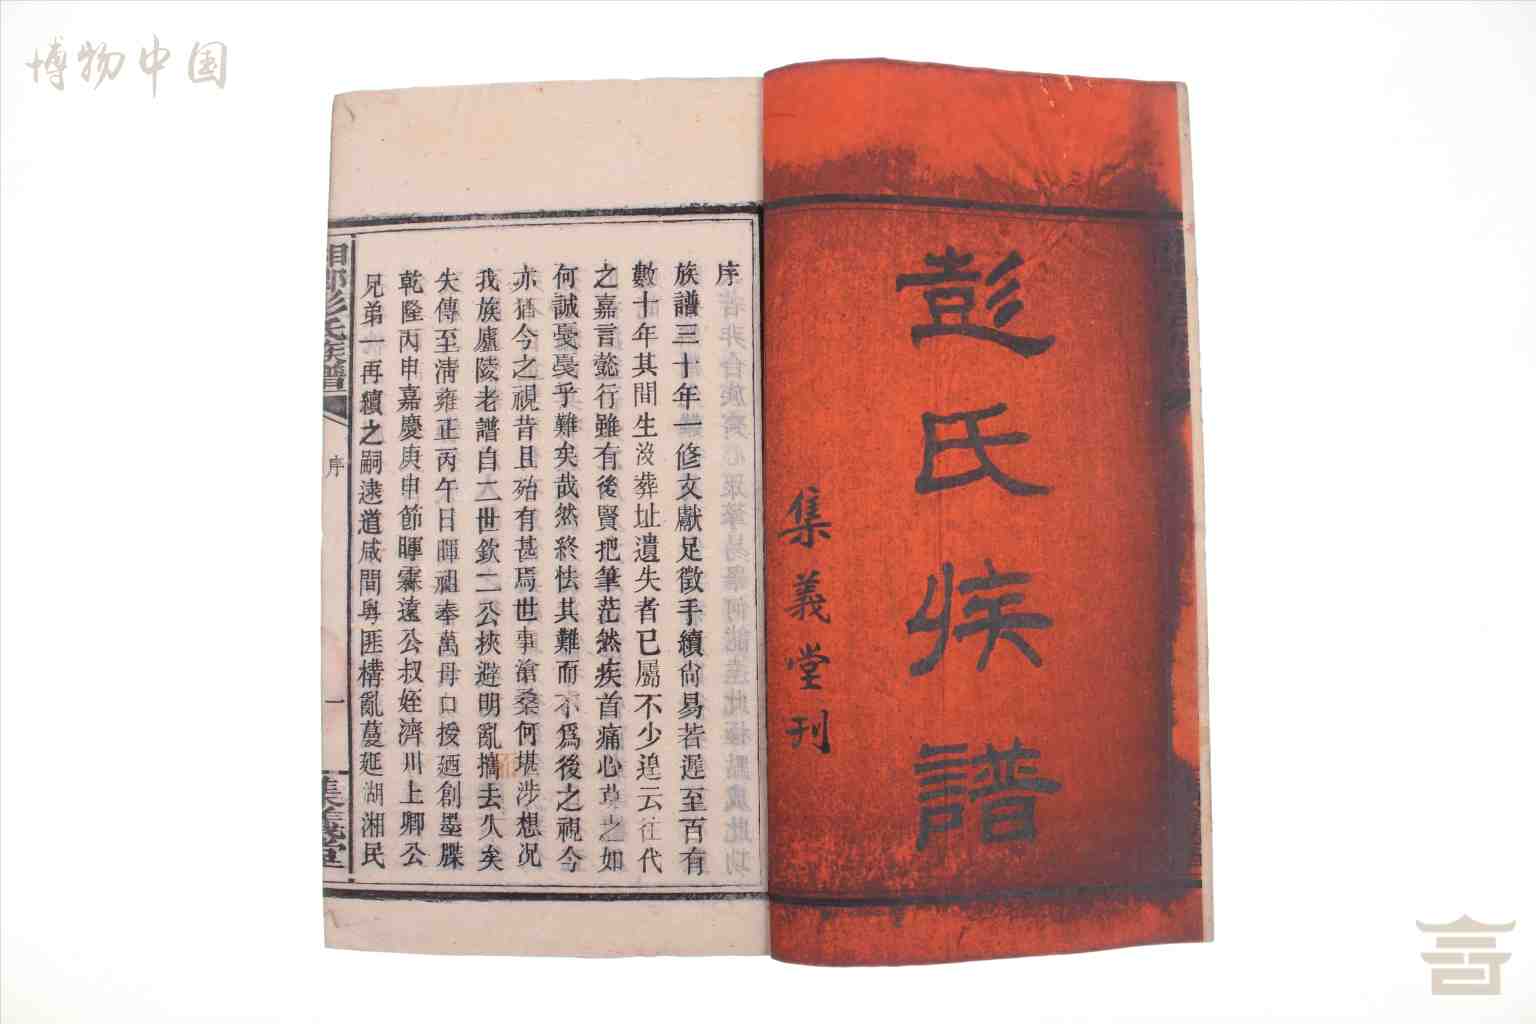 博物中国
彭氏族譜
集義堂刊
序
族譜三十年一修文獻足徵手續尙易若遲至百有
數十年其間生沒葬址遺失者已屬不少遑云往代
之嘉言懿行雖有後賢把筆茫然疾首痛心莫之如
何誠戞戞乎難矣哉然終怯其難而不爲後之視今
亦猶今之視昔且殆有甚焉世事滄桑何堪涉想况
我族廬陵老譜自二世欽二公挾避明亂攜去久矣
失傳至淸雍正丙午日暉祖奉萬母口授廼創墨牒
乾隆丙申嘉慶庚申節暉霖遠公叔姪濟川上卿公
兄弟一再續之嗣逮道咸間粵匪構亂蔓延湖湘民
湘鄉彭氏族譜
序
一
集義堂